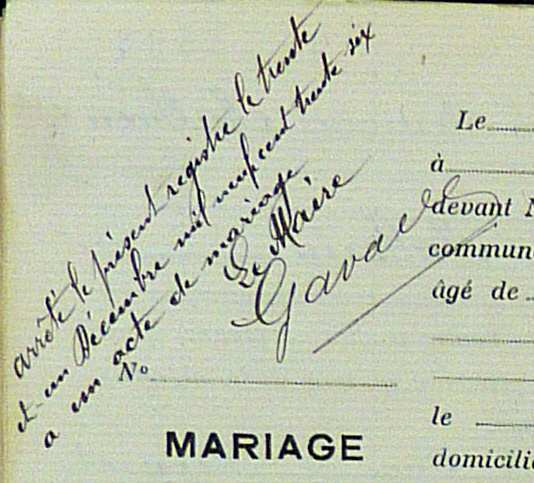 arrêté le présent registre le trente
et un Décembre mil neuf cent trente six
a un acte de mariage
Le Maire
N°
MARIAGE
Le
à
devant
commun
âgé de
le
domicili